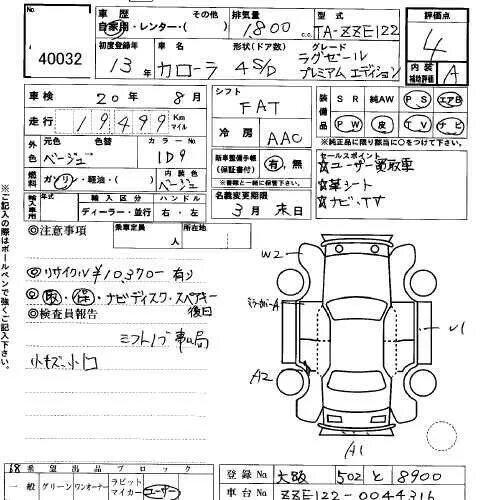 40032
車歴 その他
自家用・レンター・( )
排気量
1800 c.c.
型式
TA-ZZE122
評価点
4
初度登録年
13年
車名
カローラ
形状(ドア数)
4S/D
グレード
ラグゼール
プレミアム エディション
内装
補助評価
A
車検 20年 8月
走行 19499 Km マイル
シフト
FAT
装備品
SR 純AW PS エアB
PW 皮 TV ナビ
※純正品に限り該当に○をつけて下さい
外色
元色 色替
ベージュ
カラーNo
1D9
冷房
AAC
燃料
ガソリン・軽油・( )
内装色
ベージュ
新車整備手帳
(保証書付)
有・無
※書類と一緒に保管下さい。
セールスポイント
☆ユーザー買取車
☆革シート
☆ナビ・TV
輸入車用
輸入区分 ハンドル
ディーラー・並行 右・左
名義変更期限
3月 末日
◎注意事項
乗車定員
人
所在地
※ご記入の際はボールペンで強くご記入下さい。
◎リサイクル ¥10,370- 有り
◎取・保・ナビディスク・スペアキー
後日
◎検査員報告
小キズ・小凹
W2
A
U1
A2
A1
68 希望出品ブロック
一般 グリーン ワンオーナー ラビットマイカー ユーザー
登録No 大阪 502 と 8900
車台No ZZE122-0044316